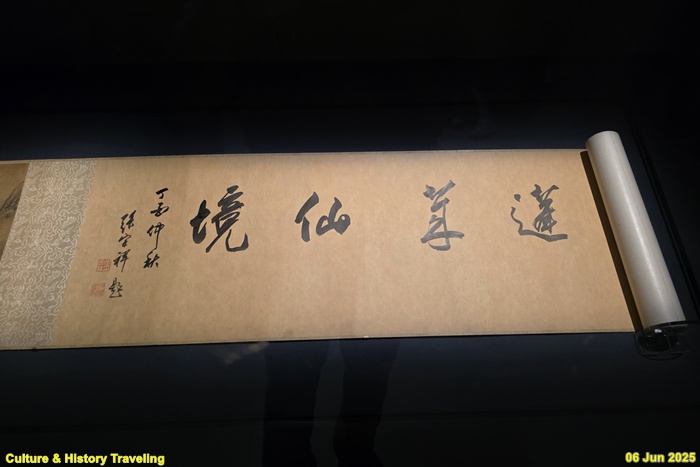 蓬莱仙境
丁酉仲秋
張宗祥題
Culture & History Traveling
06 Jun 2025